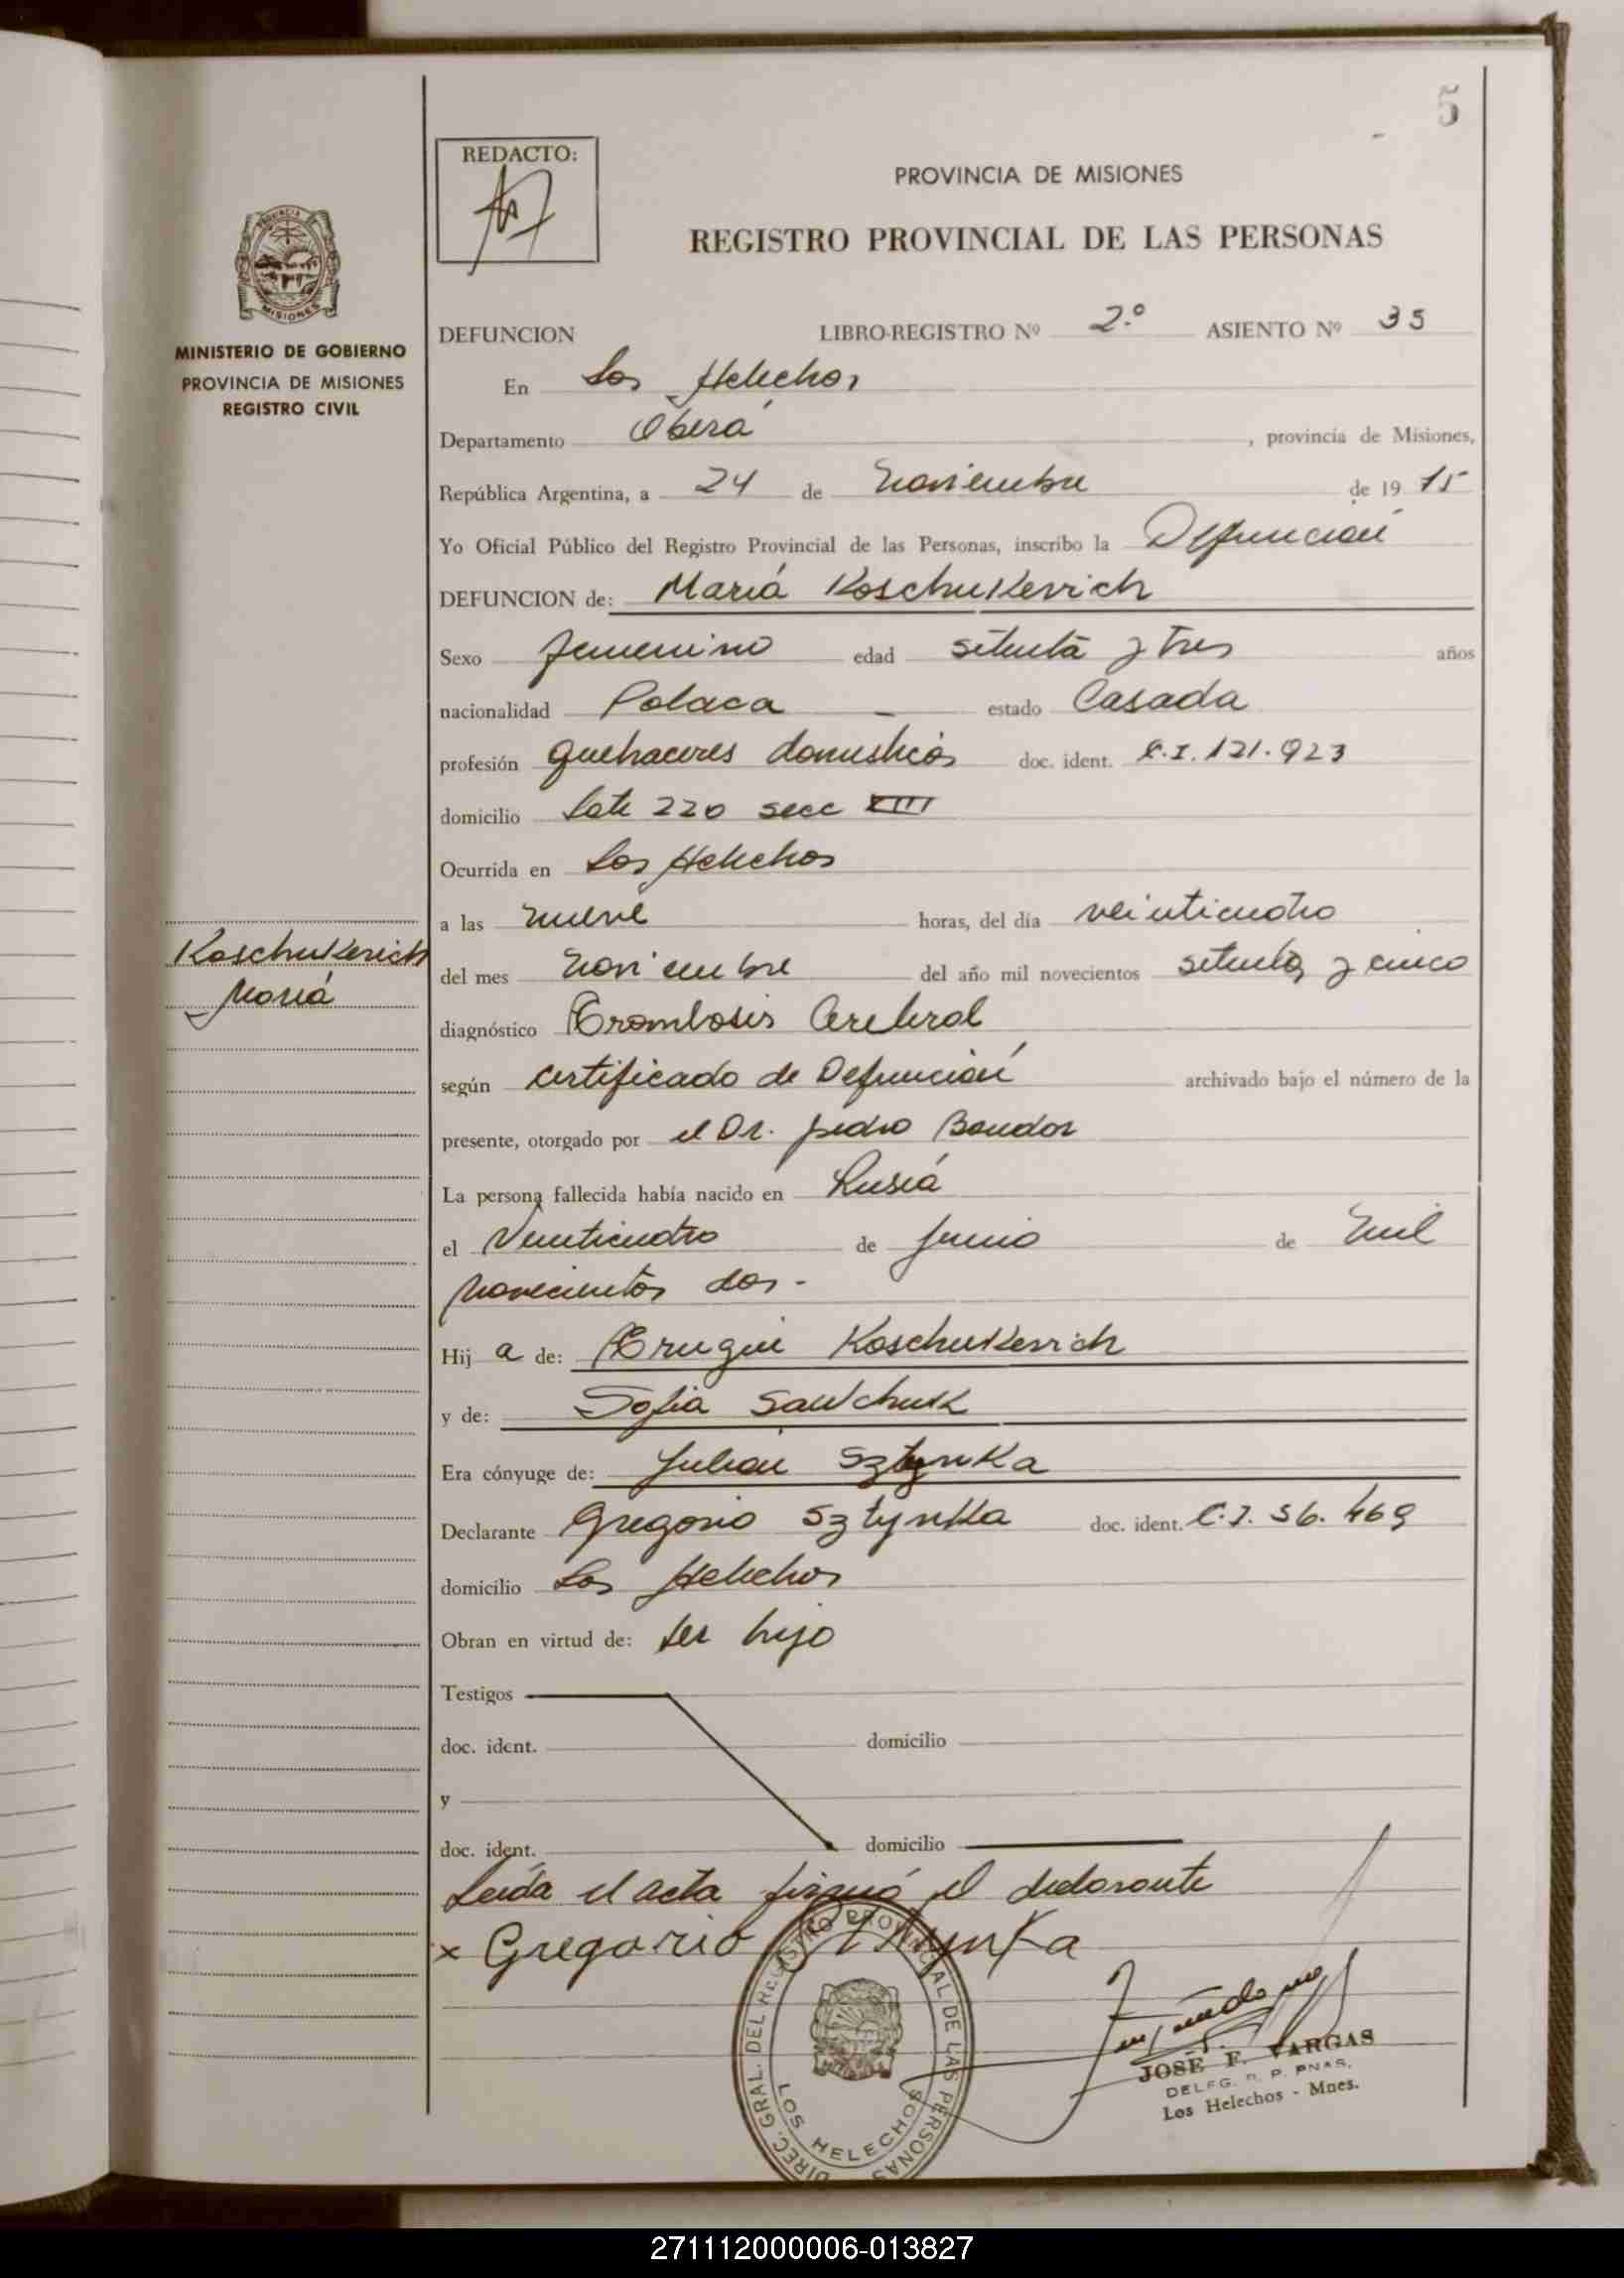 5
REDACTO:
PROVINCIA DE MISIONES
REGISTRO PROVINCIAL DE LAS PERSONAS
PROVINCIA
MISIONES
MINISTERIO DE GOBIERNO
PROVINCIA DE MISIONES
REGISTRO CIVIL
DEFUNCION LIBRO-REGISTRO Nº 2.º ASIENTO Nº 35
En Los Helechos
Departamento Oberá, provincia de Misiones,
República Argentina, a 24 de Noviembre de 19 75
Yo Oficial Público del Registro Provincial de las Personas, inscribo la Defunción
DEFUNCION de: María Koschukevich
Sexo femenino edad setenta y tres años
nacionalidad Polaca estado Casada
profesión quehaceres domesticos doc. ident. C.I. 121.923
domicilio Lote 220 secc XIII
Ocurrida en Los Helechos
a las nueve horas, del día veinticuatro
Koschukevich
María
del mes Noviembre del año mil novecientos setenta y cinco
diagnóstico Trombosis Cerebral
según certificado de Defunción archivado bajo el número de la
presente, otorgado por el Dr. Pedro
La persona fallecida había nacido en Rusia
el Veinticuatro de junio de mil
novecientos dos.-
Hij a de: Koschukevich
y de: Sofia Sawchuk
Era cónyuge de: Julian Sztynka
Declarante Gregorio Sztynka doc. ident. C.I. 56.469
domicilio Los Helechos
Obran en virtud de: ser hijo
Testigos
doc. ident. domicilio
y
doc. ident. domicilio
Leída el acta firmó el declarante
x Gregorio Sztynka
DIREC. GRAL. DEL REGISTRO PROVINCIAL DE LAS PERSONAS
LOS HELECHOS
JOSE F. VARGAS
DELEG. R. P. PNAS.
Los Helechos - Mnes.
271112000006-013827